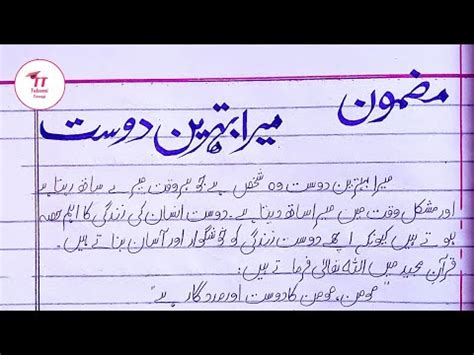 مضمون
میرا بہترین دوست
میرا بہترین دوست وہ شخص ہے جو ہر وقت میرے ساتھ رہتا ہے
اور مشکل وقت میں میرا ساتھ دیتا ہے۔ دوست انسان کی زندگی کا اہم حصہ
ہوتے ہیں کیونکہ اچھے دوست زندگی کو خوشگوار اور آسان بناتے ہیں۔
قرآن مجید میں اللہ تعالیٰ فرماتے ہیں:
"مومن، مومن کا دوست اور مددگار ہے"